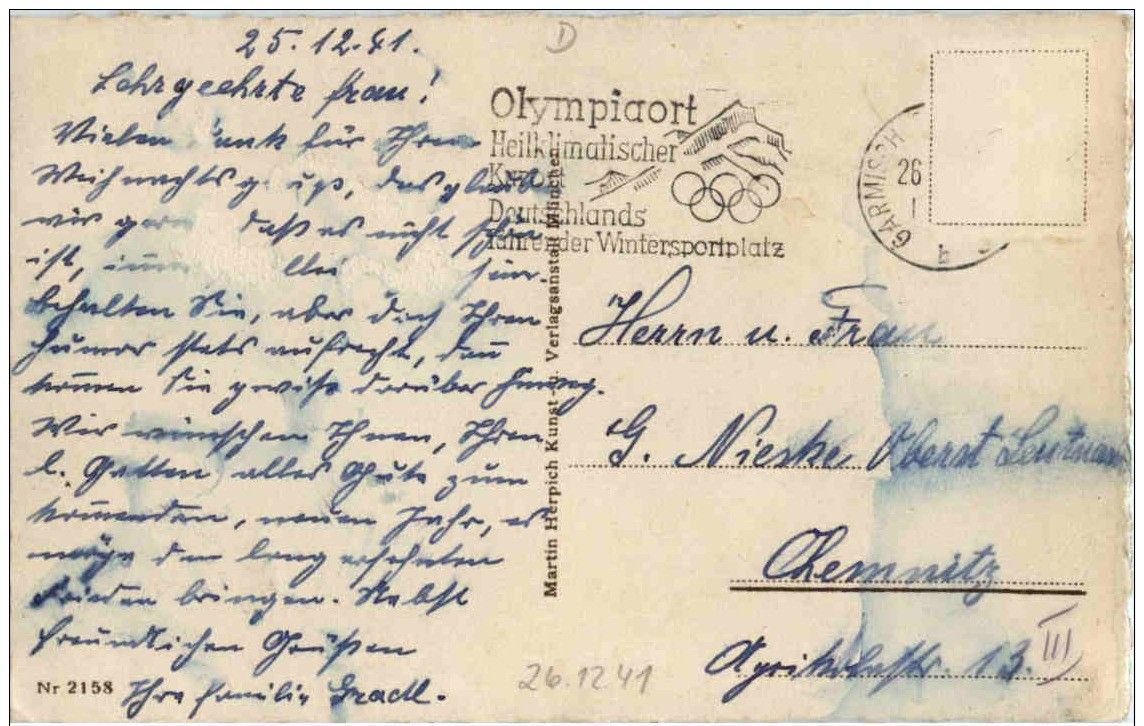 25.12.41.
D
Sehrgeehrte Frau!
Vielen ank für Ihren
Weihnachtsg. uß, das glaub
wir gern daß es nicht schön
ist, imm llei sein.
Behalten Sie, aber doch Ihren
Humor stets aufrecht, dan
kommen Sie gewiß darüber hinweg.
Wir wünschen Ihnen, Ihren
l. Gatten alles Gute zum
kommenden, neuen Jahr, es
möge den lang ersehnten
Frieden bringen. Nebst
freundlichen Grüßen
Ihre Familie
Nr 2158
Martin Herpich Kunst- u. Verlagsanstalt München
Olympiaort
Heilklimatischer
Kurort
Deutschlands
führender Wintersportplatz
GARMISCH
26
b
Herrn u. Frau
G. Nieske Oberst Leutnant
Chemnitz
13. III
26.12 41